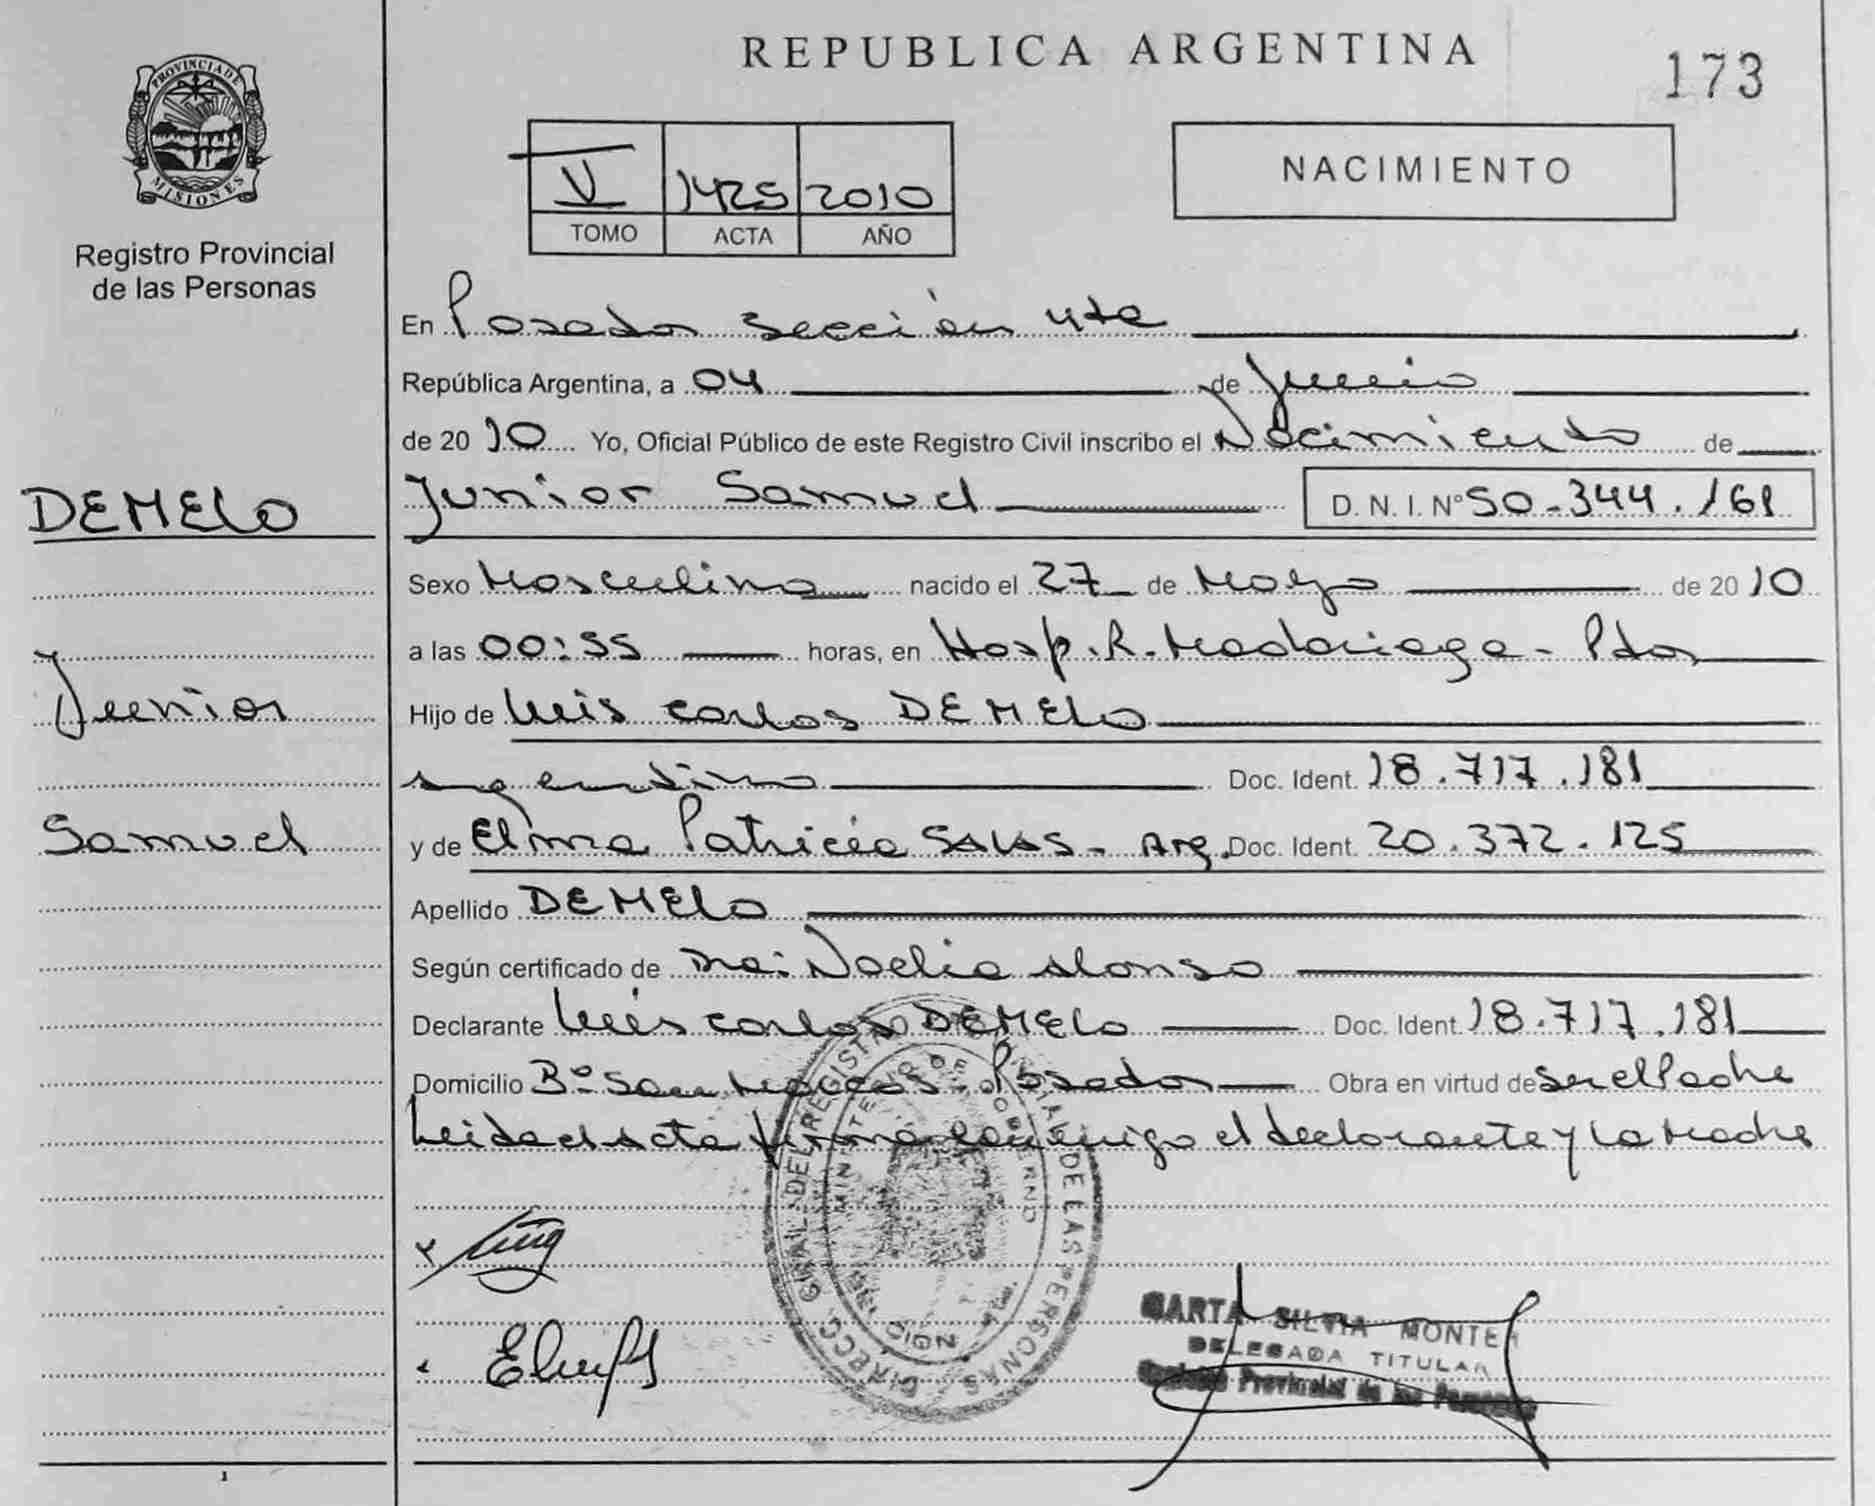 REPUBLICA ARGENTINA
173
PROVINCIA DE
MISIONES
Registro Provincial
de las Personas
V 1425 2010
TOMO ACTA AÑO
NACIMIENTO
En Posadas Sección 4ta
República Argentina, a 04 de Junio
de 2010 Yo, Oficial Público de este Registro Civil inscribo el Nacimiento de
DEMELO
Junior Samuel D. N. I. Nº 50.344.161
Sexo Masculino nacido el 27 de Mayo de 2010
a las 00:55 horas, en Hosp. R. Madariaga - Pdas
Junior
Hijo de Luis Carlos DEMELO
argentino Doc. Ident. 18.717.181
Samuel
y de Elma Patricia SALAS - Arg. Doc. Ident. 20.372.125
Apellido DEMELO
Según certificado de Dra: Noelia Alonso
Declarante Luis Carlos DEMELO Doc. Ident. 18.717.181
Domicilio Bº San Marcos Posadas Obra en virtud de Ser el Padre
Leida el Acta firma conmigo el declarante y la Madre
DIRECC. GRAL. DEL REGISTRO PROVINCIAL DE LAS PERSONAS
MINISTERIO DE GOBIERNO
MARTA SILVIA MONTE
DELEGADA TITULAR
Provincial de las Personas
1